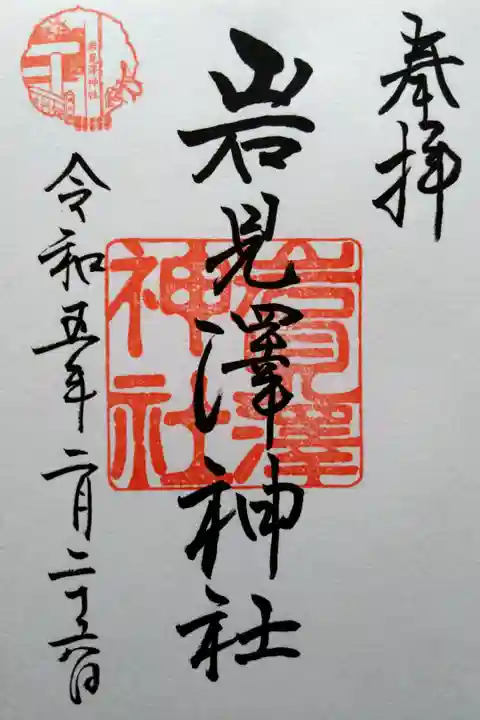 奉拝
岩見澤神社
岩見澤
神社
令和五年二月二十六日
岩見澤神社